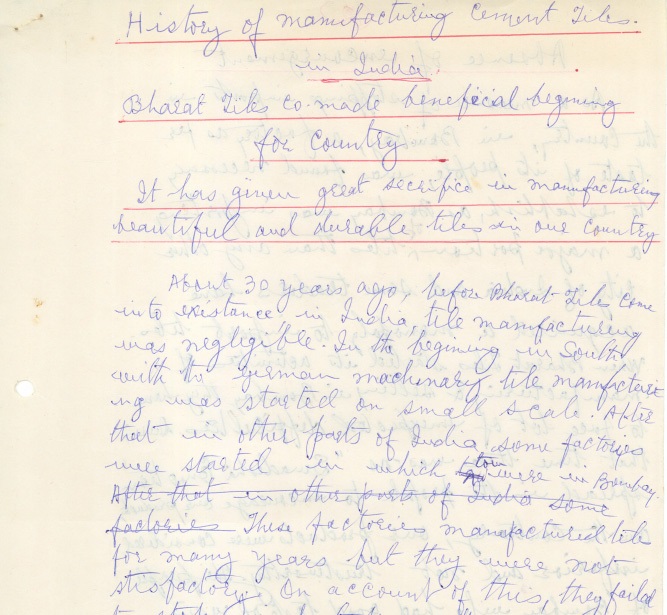 History of manufacturing Cement Tiles.
in India.
Bharat Tiles Co. made beneficial begining
for Country
It has given great secrifice in manufacturing
beautiful and durable tiles in our Country
About 30 years ago, before Bharat Tiles Come
into existance in India, tile manufacturing
was neglegible. In the begining in South
with the german machinary tile manufactur
ng was started on small scale. After
that in other parts of India some factories
were started in which were in Bombay
After that in other parts of India some
factories These factories manufactured tiles
for many years but they were not
stisfactory. On account of this, they failed